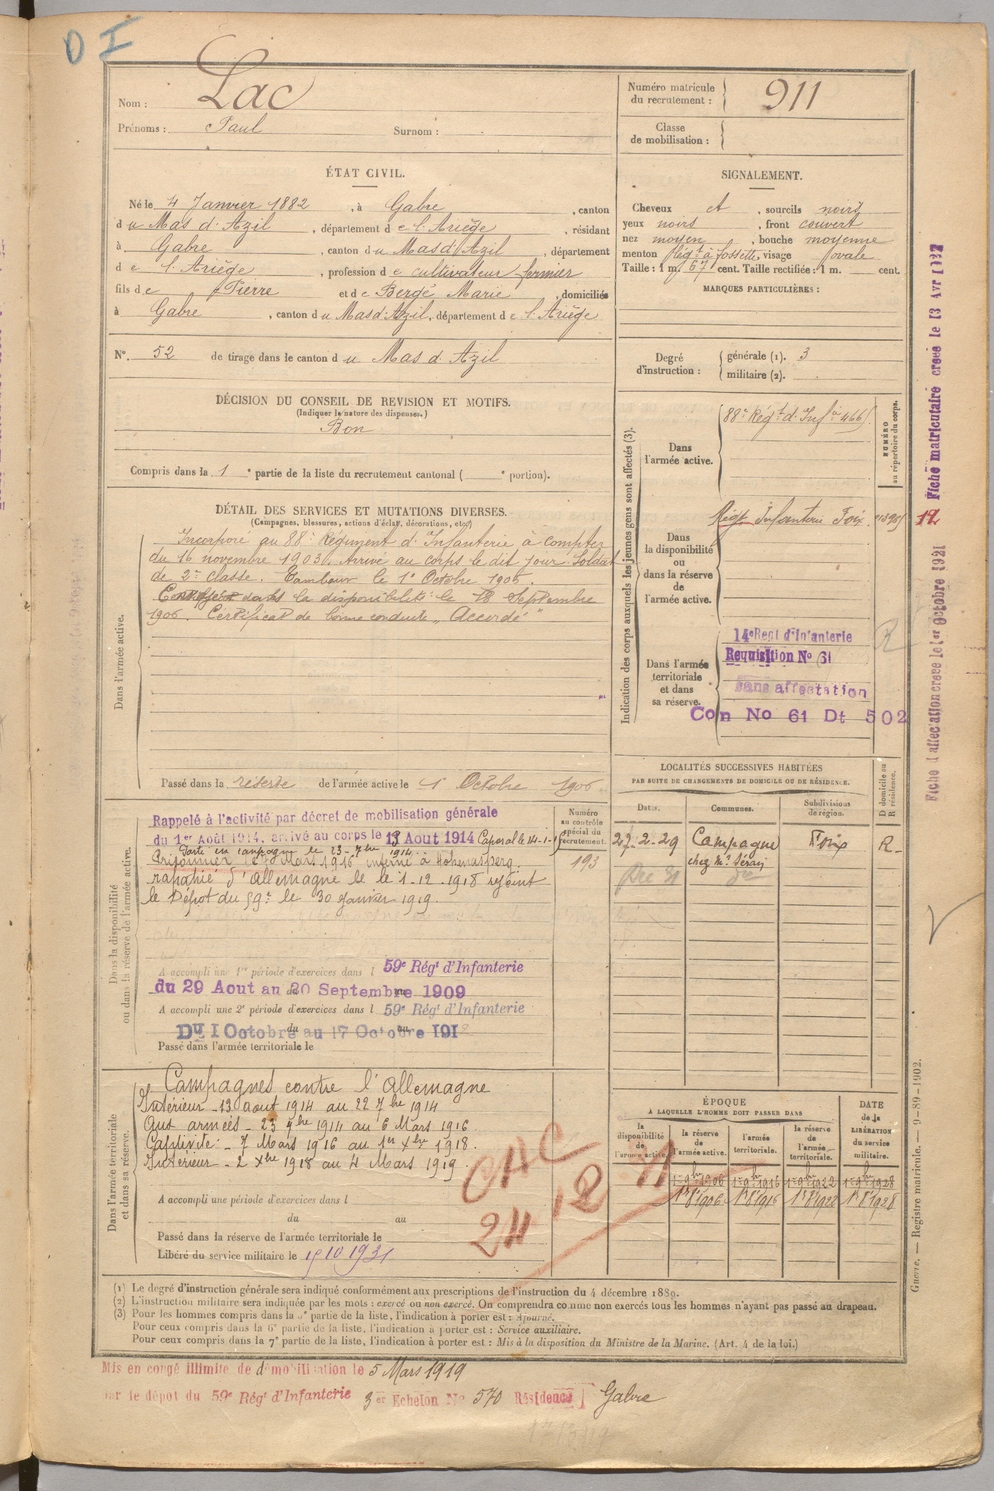 D I
Nom : Lac
Prénoms : Paul Surnom :
Numéro matricule
du recrutement : 911
Classe
de mobilisation :
ÉTAT CIVIL.
Né le 4 Janvier 1882, à Gabre, canton
du Mas d'Azil, département de l'Ariège, résidant
à Gabre, canton du Mas d'Azil, département
de l'Ariège, profession de cultivateur fermier
fils de Pierre et de Bergé Marie, domiciliés
à Gabre, canton du Mas d'Azil, département de l'Ariège
N° 52 de tirage dans le canton du Mas d'Azil
SIGNALEMENT.
Cheveux et, sourcils noirs
yeux noirs, front couvert
nez moyen, bouche moyenne
menton à fossette, visage ovale
Taille : 1 m. 67 cent. Taille rectifiée : 1 m. cent.
MARQUES PARTICULIÈRES :
Degré
d'instruction :
générale (1). 3
militaire (2).
DÉCISION DU CONSEIL DE REVISION ET MOTIFS.
(Indiquer la nature des dispenses.)
Bon
Compris dans la 1e partie de la liste du recrutement cantonal ( e portion).
DÉTAIL DES SERVICES ET MUTATIONS DIVERSES.
(Campagnes, blessures, actions d'éclat, décorations, etc.)
Dans l'armée active.
Incorporé au 88e Régiment d'Infanterie à compter
du 16 novembre 1903. Arrivé au corps le dit jour. Soldat
de 2e classe. Tambour le 1er Octobre 1905.
dans la disponibilité le 18 Septembre
1906. Certificat de bonne conduite "Accordé"
Passé dans la réserve de l'armée active le 1er Octobre 1906.
Indication des corps auxquels les jeunes gens sont affectés (3).
Dans
l'armée active.
88e Régt d'Infie 466
NUMÉRO
au répertoire du corps.
Dans
la disponibilité
ou
dans la réserve
de
l'armée active.
Régt Infanterie Foix
Dans l'armée
territoriale
et dans
sa réserve.
14e Regt d'Infanterie
Requisition No 61
Sans affectation
Con No 61 Dt 502
Fiche d'affectation creee le 1er Octobre 1921 Fiche matriculaire creee le 13 Avr 1922
12
LOCALITÉS SUCCESSIVES HABITÉES
PAR SUITE DE CHANGEMENTS DE DOMICILE OU DE RÉSIDENCE.
Dates. Communes. Subdivisions de région. D domicile ou R résidence.
27-2-29 Campagne Foix R-
Dans la disponibilité
ou dans la réserve de l'armée active.
Numéro
au contrôle
spécial du
recrutement.
193
Rappelé à l'activité par décret de mobilisation générale
du 1er Août 1914, arrivé au corps le 13 Aout 1914
Parti en campagne le 23-7bre 1914.
Prisonnier le 7 Mars 1916 interné à Hohenasperg.
rapatrié d'Allemagne le le 1-12-1918 rejoint
le Dépot du 59e le 30 janvier 1919.
A accompli une 1re période d'exercices dans l 59e Régt d'Infanterie
du 29 Aout au 20 Septembre 1909
A accompli une 2e période d'exercices dans l 59e Régt d'Infanterie
Du 1 Octobre au 17 Octobre 1912
Passé dans l'armée territoriale le
Dans l'armée territoriale
et dans sa réserve.
Campagnes contre l'Allemagne
Intérieur - 13 août 1914 au 22 7bre 1914
Aux armées - 23 7bre 1914 au 6 Mars 1916
Captivité - 7 Mars 1916 au 1er Xbre 1918.
Intérieur - 2 Xbre 1918 au 4 Mars 1919.
A accompli une période d'exercices dans l
du au
Passé dans la réserve de l'armée territoriale le
Libéré du service militaire le 15 10 1931
CAC
24 12 71
ÉPOQUE
À LAQUELLE L'HOMME DOIT PASSER DANS
la disponibilité de l'armée active. la réserve de l'armée active. l'armée territoriale. la réserve de l'armée territoriale.
DATE de la LIBÉRATION du service militaire.
1er 9bre 1906 1er 9bre 1916 1er 9bre 1922 1er 9bre 1928
1er 8bre 1906 1er 8bre 1916 1er 8bre 1922 1er 8bre 1928
Guerre. — Registre matricule. — 9-89-1902.
(1) Le degré d'instruction générale sera indiqué conformément aux prescriptions de l'instruction du 4 décembre 1889.
(2) L'instruction militaire sera indiquée par les mots : exercé ou non exercé. On comprendra comme non exercés tous les hommes n'ayant pas passé au drapeau.
(3) Pour les hommes compris dans la 5e partie de la liste, l'indication à porter est : Ajourné.
Pour ceux compris dans la 6e partie de la liste, l'indication à porter est : Service auxiliaire.
Pour ceux compris dans la 7e partie de la liste, l'indication à porter est : Mis à la disposition du Ministre de la Marine. (Art. 4 de la loi.)
Mis en congé illimité de démobilisation le 5 Mars 1919
par le dépot du 59e Rég' d'Infanterie 3er Echelon No 570 Résidence Gabre